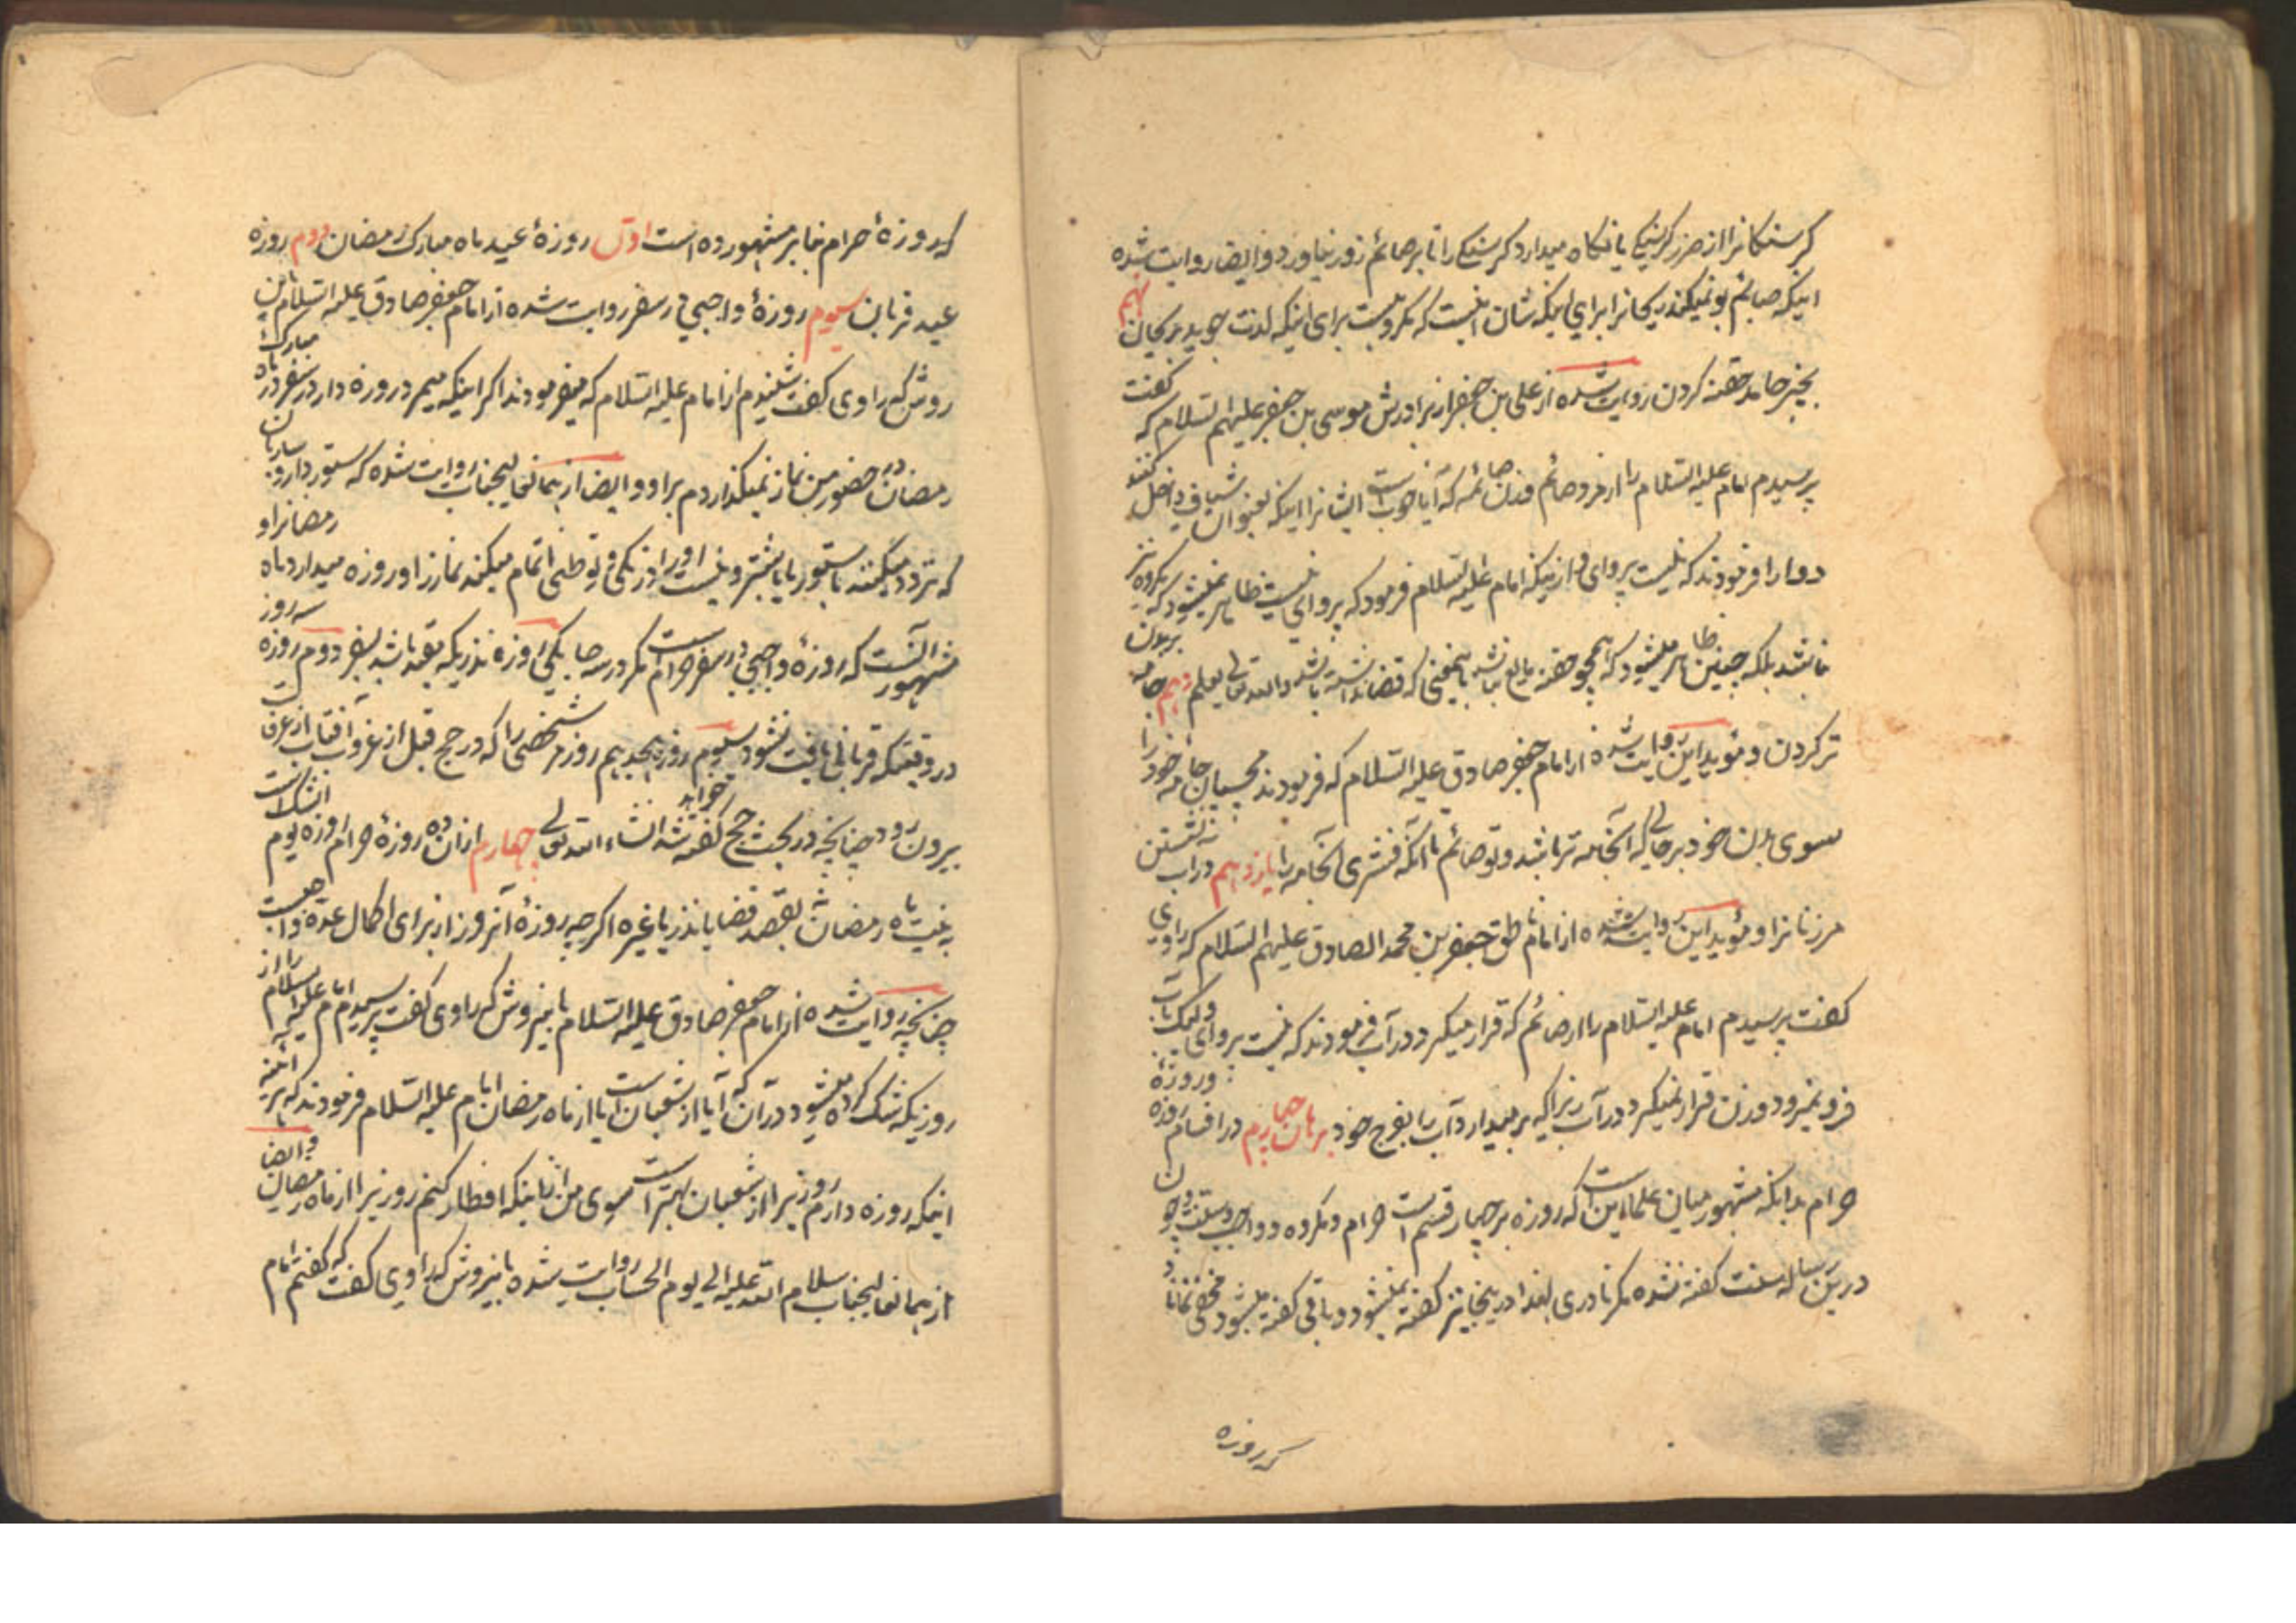 کرسنکانرا از ضرر کرسنکی یا نکاه میدارد کرسنکی را تا بر صائم زور نیاورد و ایضا روایت شده
اینکه صائم بو نمیکند ریحانرا برای اینکه شان اینست که مکروهست برای اینکه لذت جوید بریحان نهم
بچیز جامد حقنه کردن روایت شده از علی بن جعفر از برادرش موسی بن جعفر علیهم السلام که کفت
پرسیدم امام علیه السلام را از مرد صائم و زن صائمه که آیا خوبست ایشانرا اینکه بعنوان شیاف داخل کنند
دوا را فرمودند که نیست پروای و از اینکه امام علیه السلام فرمود که پروای نیست ظاهر نمیشود که مکروه نیز
نباشد بلکه چنین ظاهر میشود که همچو حقنه مایع نباشد باینمعنی که قضا نداشته باشد و الله تعالی یعلم دهم جامه بر بدن
تر کردن و مؤید این روایت شده از امام جعفر صادق علیه السلام که فرمودند مچسپان جامه خود را
سوی بدن خود بر حالی که آنجامه تر باشد و تو صائم تا آنکه فشری آنجامه را یازدهم در آب نشستن
مر زنانرا و مؤید این روایت شده از امام ناطق جعفر بن محمد الصادق علیهم السلام که راوی
کفت پرسیدم امام علیه السلام را از صائم که قرار میکیرد در آب فرمودند که نیست پروای ولیکن بآب
فرو نمیرود و زن قرار نمیکیرد در آب زیرا که برمیدارد آب را بفرج خود برهان چهارم در اقسام روزه و روزهٔ
حرام بدانکه مشهور میان علما اینست که روزه بر چهار قسم است حرام و مکروه و واجب و سنت و چون
درین رساله سنت کفته نشده مکر نادری لهذا در اینجا نیز کفته نمیشود و باقی کفته میشود مخفی نماناد
که روزه
که روزهٔ حرام بنا بر مشهور ده است اول روزهٔ عید ماه مبارک رمضان دوم روزه
عید قربان سیوم روزهٔ واجبی در سفر روایت شده از امام جعفر صادق علیه السلام باین
روش که راوی کفت شنیدم از امام علیه السلام که میفرمودند اکر اینکه میمرد روزه دار در سفر در ماه مبارک
رمضان در حضور من نماز نمیکذاردم بر او و ایضا از همان عالیجناب روایت شده که ستور دار و ساربان
که تردد میکنند با ستور یا با شتر و نیست او را وزنکی و توطنی اتمام میکند نماز را و روزه میدارد ماه رمضانرا و
مشهور آنست که روزهٔ واجبی در سفر حرام است مکر در سه جا یکی روزه نذریکه بقید باشد بسفر دوم روزه سه روز
در وقتیکه قربانی یافت نشود سیوم روزه هیجدهم روز مر شخصی را که در حج قبل از غروب آفتاب از عرفات
بیرون رود چنانچه در بحث حج کفته خواهد شد انشاء الله تعالی چهارم از آن ده روزهٔ حرام روزه یوم الشک است
به نیت ماه رمضان نه بقصد قضا یا نذر یا غیره اکرچه روزهٔ آنروز از برای اکمال عده واجبست
چنانچه روایت شده از امام جعفر صادق علیه السلام باینروش که راوی کفت پرسیدم امام علیه السلام را از
روزیکه شک کرده میشود در آن که آیا از شعبان است یا از ماه رمضان امام علیه السلام فرمودند که هر آینه
اینکه روزه دارم روزیرا از شعبان بهتر است سوی من از اینکه افطار کنم روزیرا از ماه رمضان و ایضا
از همان عالیجناب سلام الله علیه الی یوم الحساب روایت شده باینروش که راوی کفت که کفتم امام